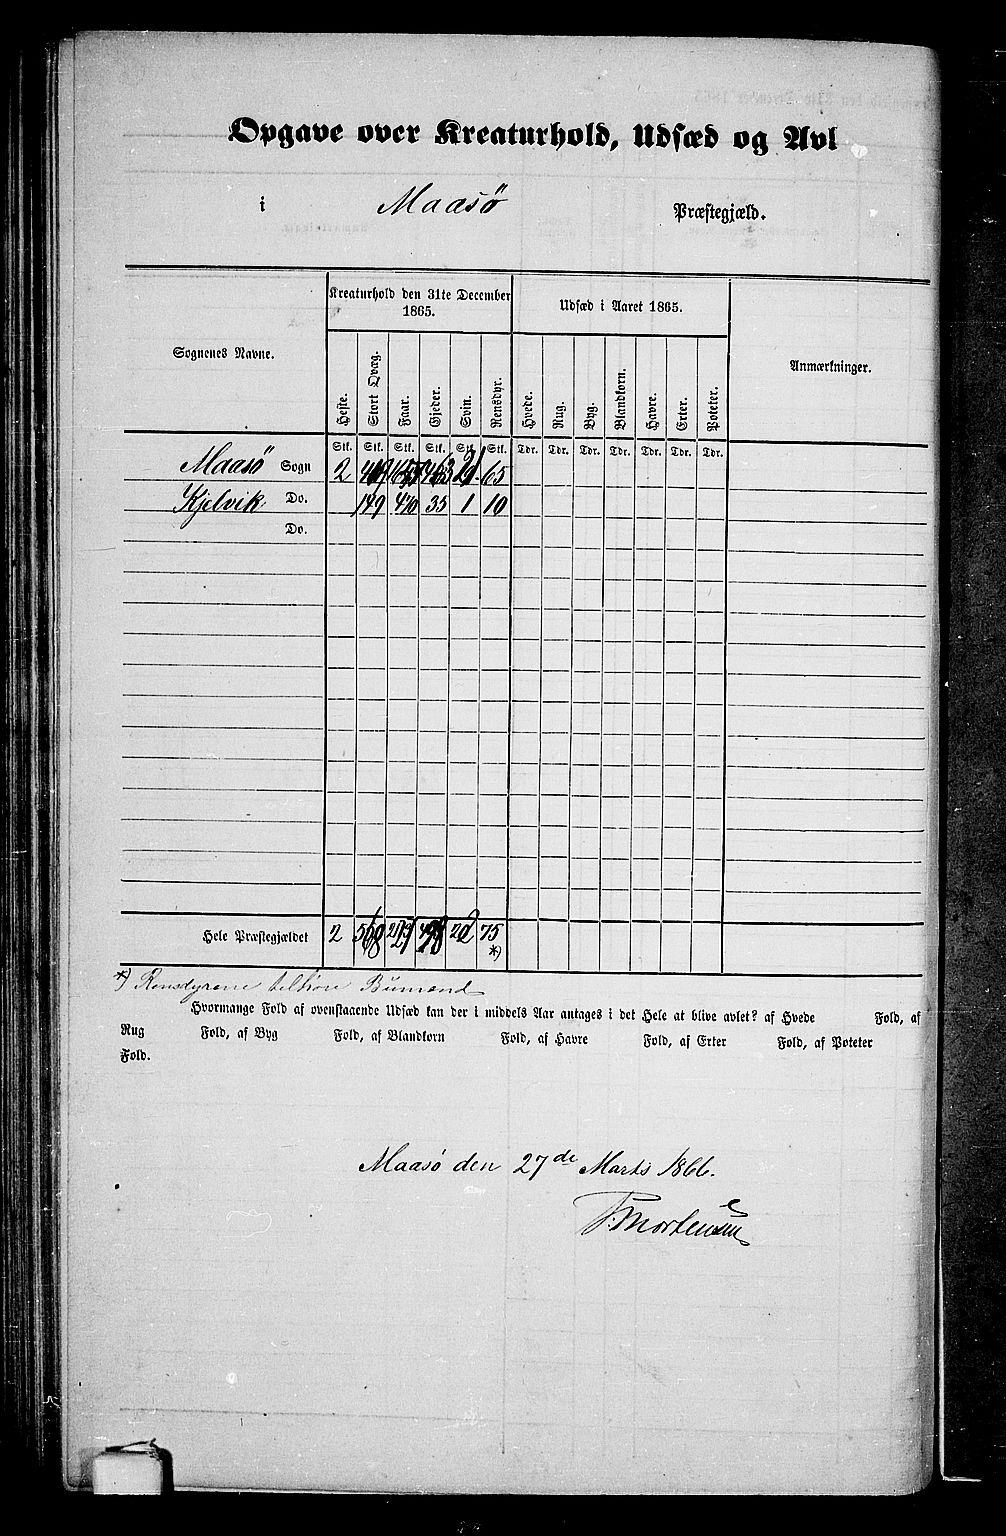 Opgave over Kreaturhold, Udsæd og Avl
i Maasø Præstegjæld.
Sognenes Navne. Kreaturhold den 31te December 1865. Udsæd i Aaret 1865. Anmærkninger.
Heste. Stort Qvæg. Faar. Gjeder. Svin. Rensdyr. Hvede. Rug. Byg. Blandkorn. Havre. Erter. Poteter.
Stk. Stk. Stk. Stk. Stk. Stk. Tdr. Tdr. Tdr. Tdr. Tdr. Tdr. Tdr.
Maasø Sogn 2 65
Kjelvik Do. 149 470 35 1 10
Do.
Hele Præstegjældet 2 75
*)
*) Rensdyrene tilhøre Bumænd
Hvormange Fold af ovenstaaende Udsæd kan der i middels Aar antages i det Hele at blive avlet? af Hvede Fold, af
Rug Fold, af Byg Fold, af Blandkorn Fold, af Havre Fold, af Erter Fold, af Poteter
Fold.
Maasø den 27de Marts 1866.
Mortensen